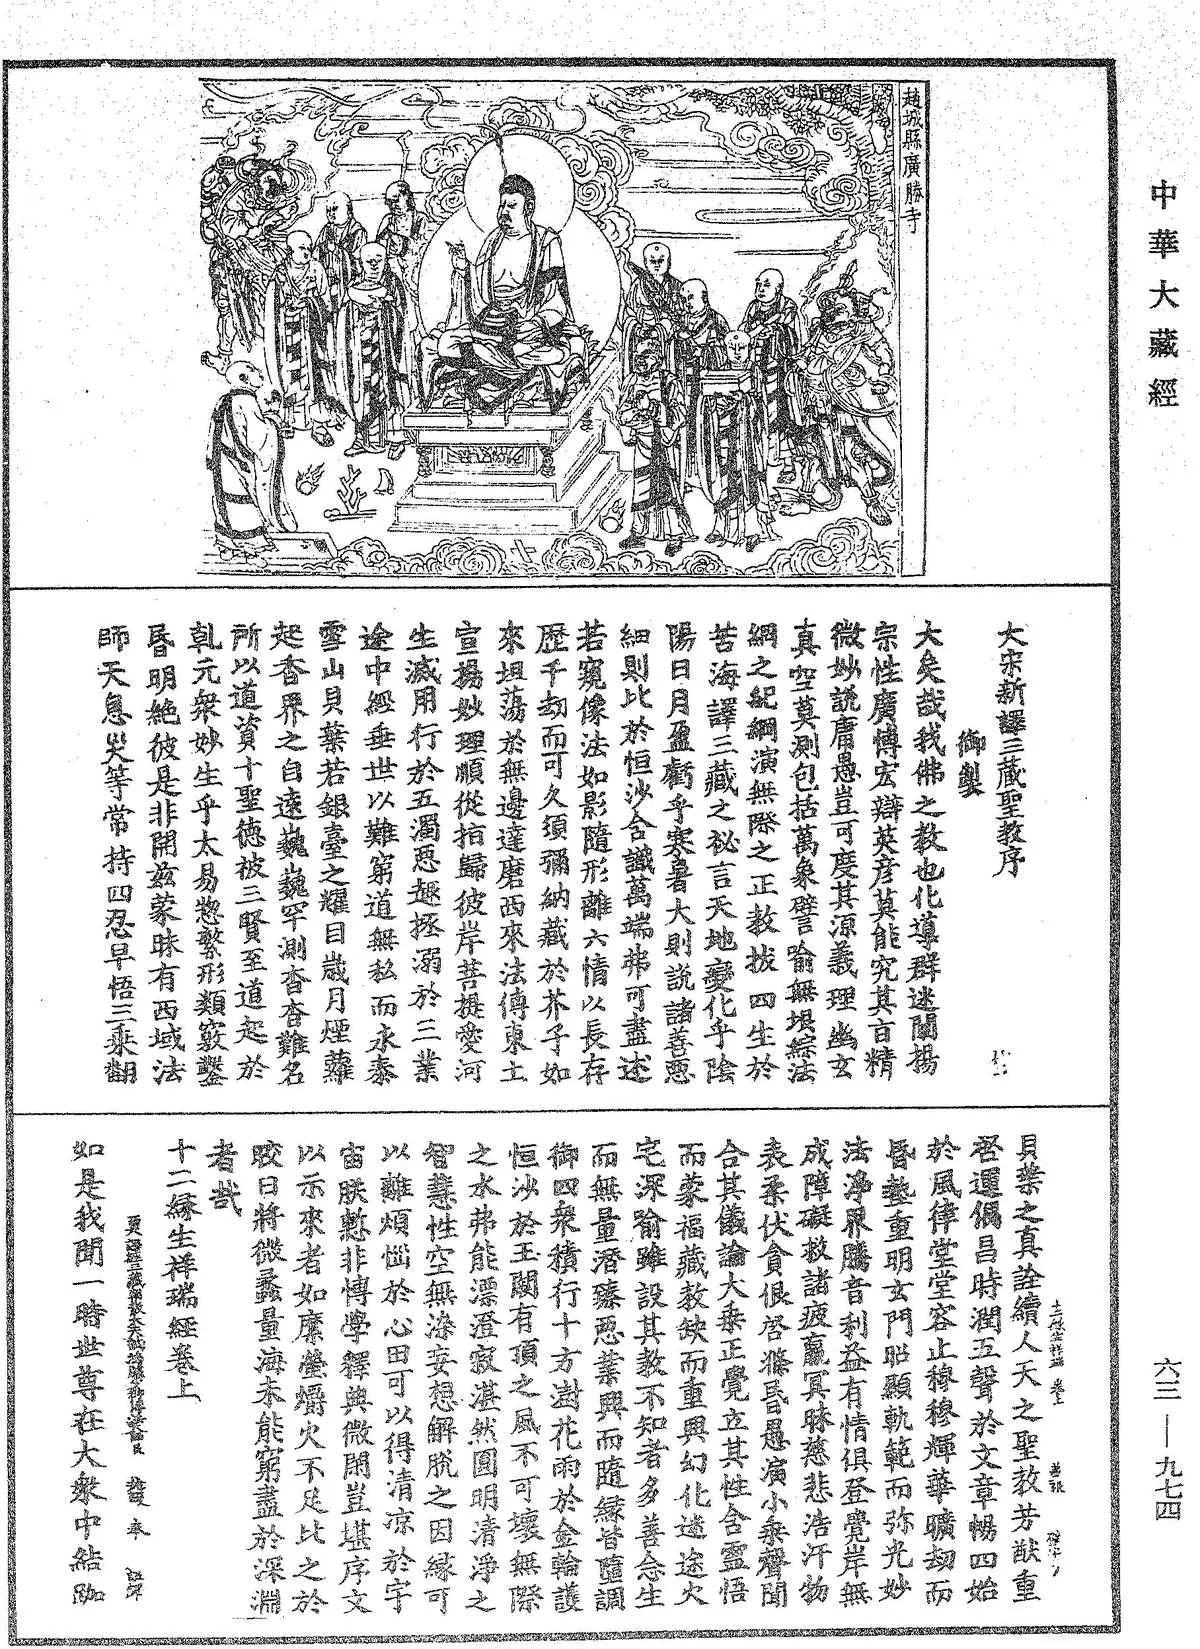 中華大藏經
趙城縣廣勝寺
大宋新譯三藏聖教序
御製
大矣哉我佛之教也化導群迷闡揚
宗性廣博宏辯英彥莫能究其旨精
微妙說庸愚豈可度其源義理幽玄
真空莫測包括萬象譬喻無垠綜法
網之紀綱演無際之正教拔四生於
苦海譯三藏之祕言天地變化乎陰
陽日月盈虧乎寒暑大則說諸善惡
細則比於恒沙含識萬端弗可盡述
若窺像法如影隨形離六情以長存
歷千劫而可久須彌納藏於芥子如
來坦蕩於無邊達磨西來法傳東土
宣揚妙理順從指歸彼岸菩提愛河
生滅用行於五濁惡趣拯溺於三業
途中經垂世以難窮道無私而永泰
雪山貝葉若銀臺之耀目歲月煙蘿
起香界之自遠巍巍罕測杳杳難名
所以道資十聖德被三賢至道起於
乹元衆妙生乎太易惣繫形類竅鑿
昏明絕彼是非開兹蒙昧有西域法
師天息灾等常持四忍早悟三乘翻
貝葉之真詮續人天之聖教芳猷重
啓運偶昌時潤五聲於文章暢四始
於風律堂堂容止穆穆輝華曠劫而
昏墊重明玄門昭顯軌範而弥光妙
法淨界騰音利益有情俱登覺岸無
成障礙救諸疲羸冥昧慈悲浩汗物
表柔伏貪佷啓滌昏愚演小乘聲聞
合其儀論大乘正覺立其性含靈悟
而蒙福藏教缺而重興幻化迷途火
宅深喻雖設其教不知者多善念生
而無量潛臻惡業興而隨緣皆隨調
御四衆積行十方澍花雨於金輪護
恒沙於玉闕有頂之風不可壞無際
之水弗能漂澄寂湛然圓明清淨之
智慧性空無染妄想解脫之因緣可
以離煩惱於心田可以得清凉於宇
宙朕慙非博學釋典微閑豈堪序文
以示來者如縻螢爝火不足比之於
皎日將微蠡量海未能窮盡於深淵
者哉
十二緣生祥瑞經卷上
如是我聞一時世尊在大衆中結跏
六三—九七四